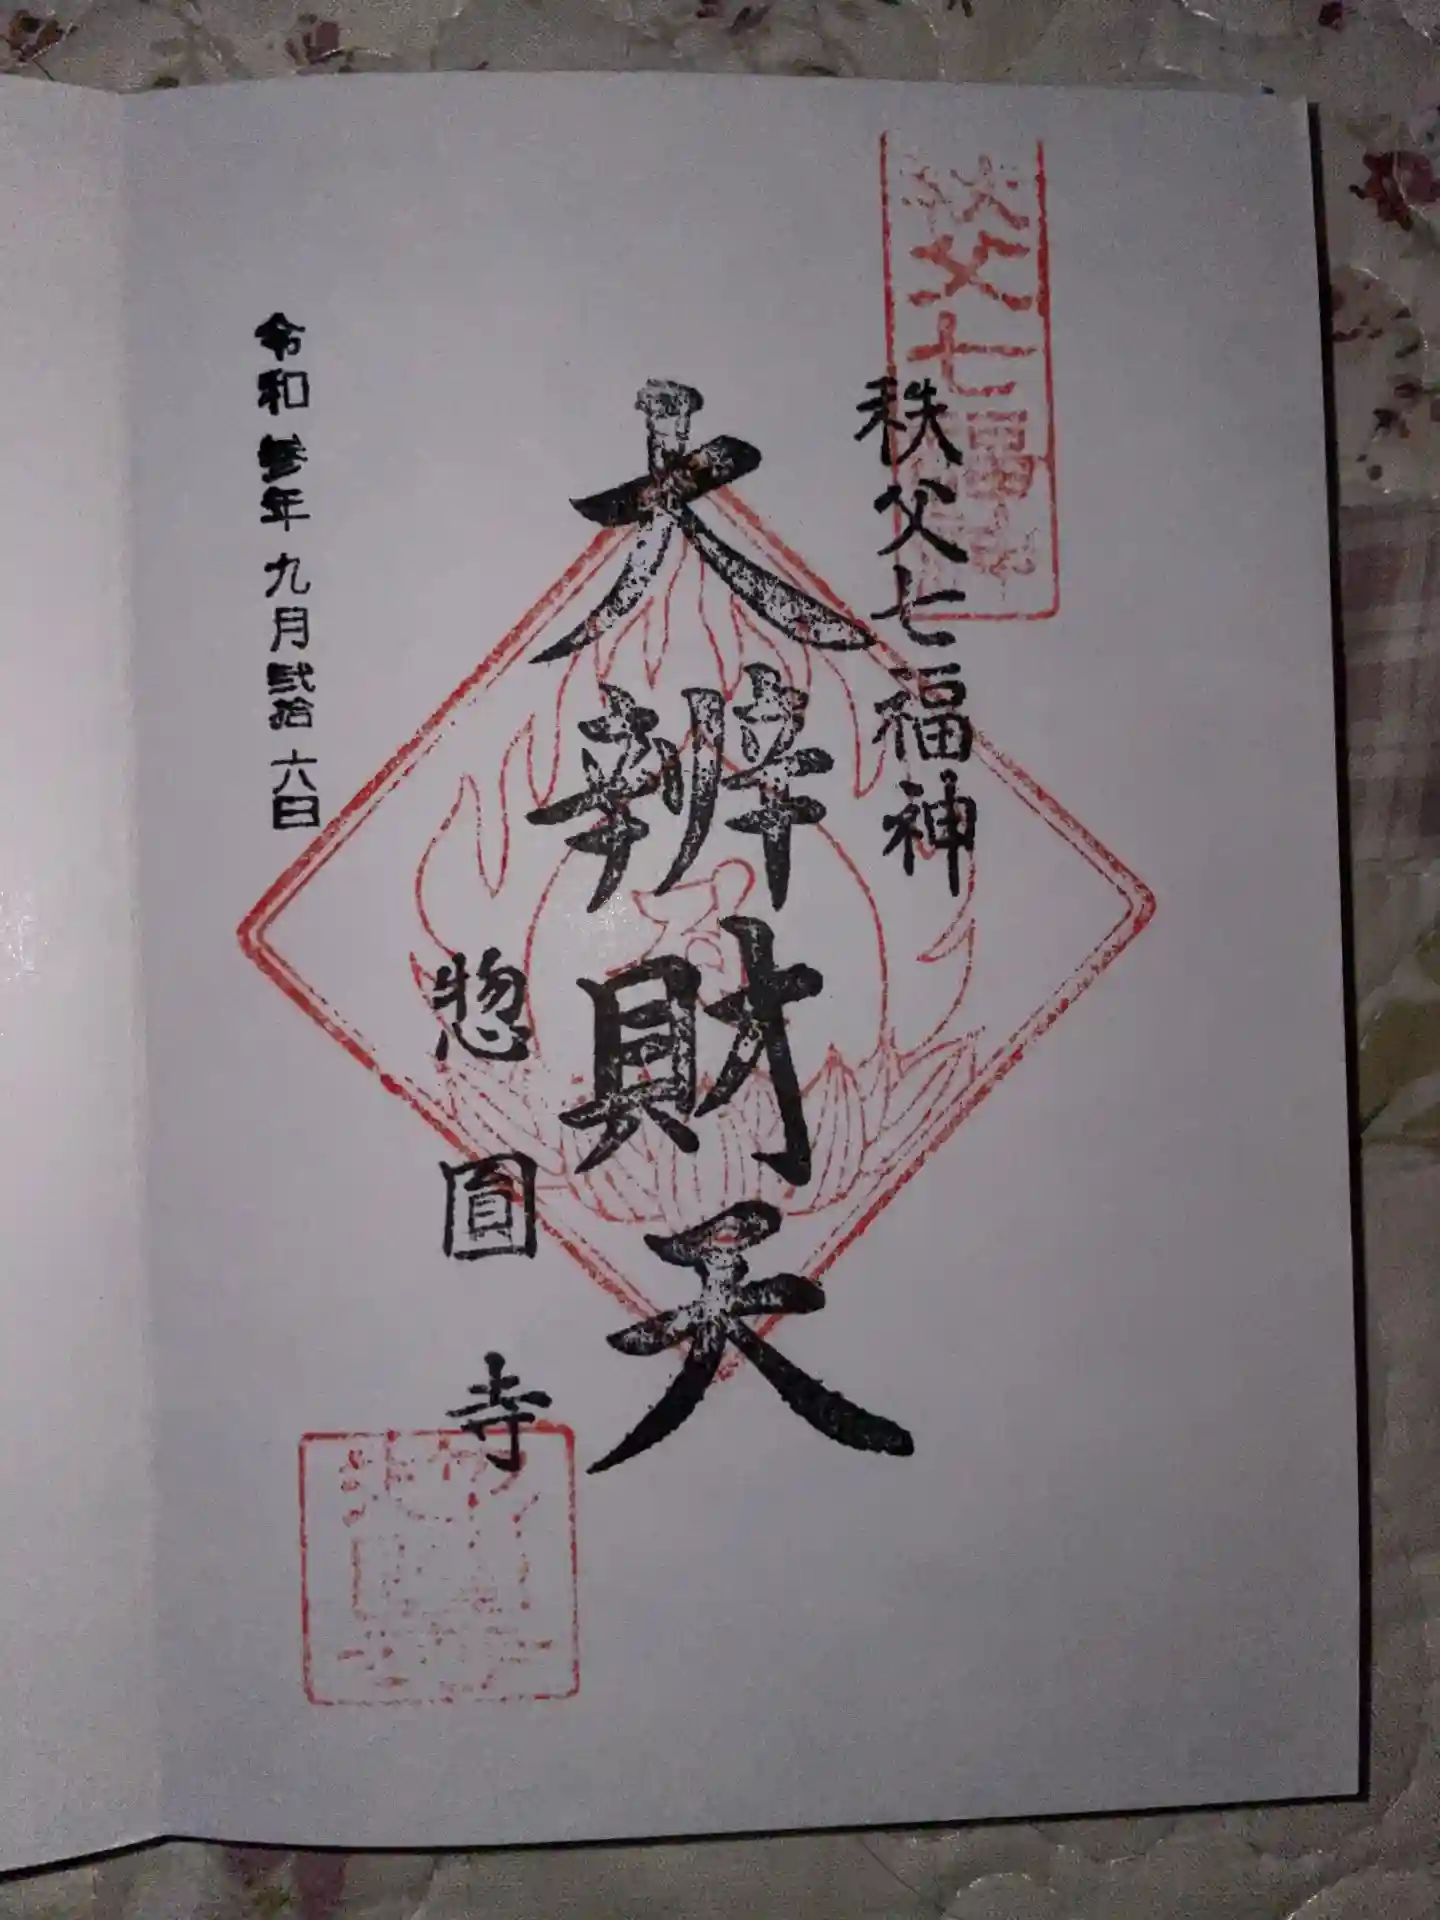 秩父七福
秩父七福神
大辨財天
惣圓寺
令和参年九月弐拾六日